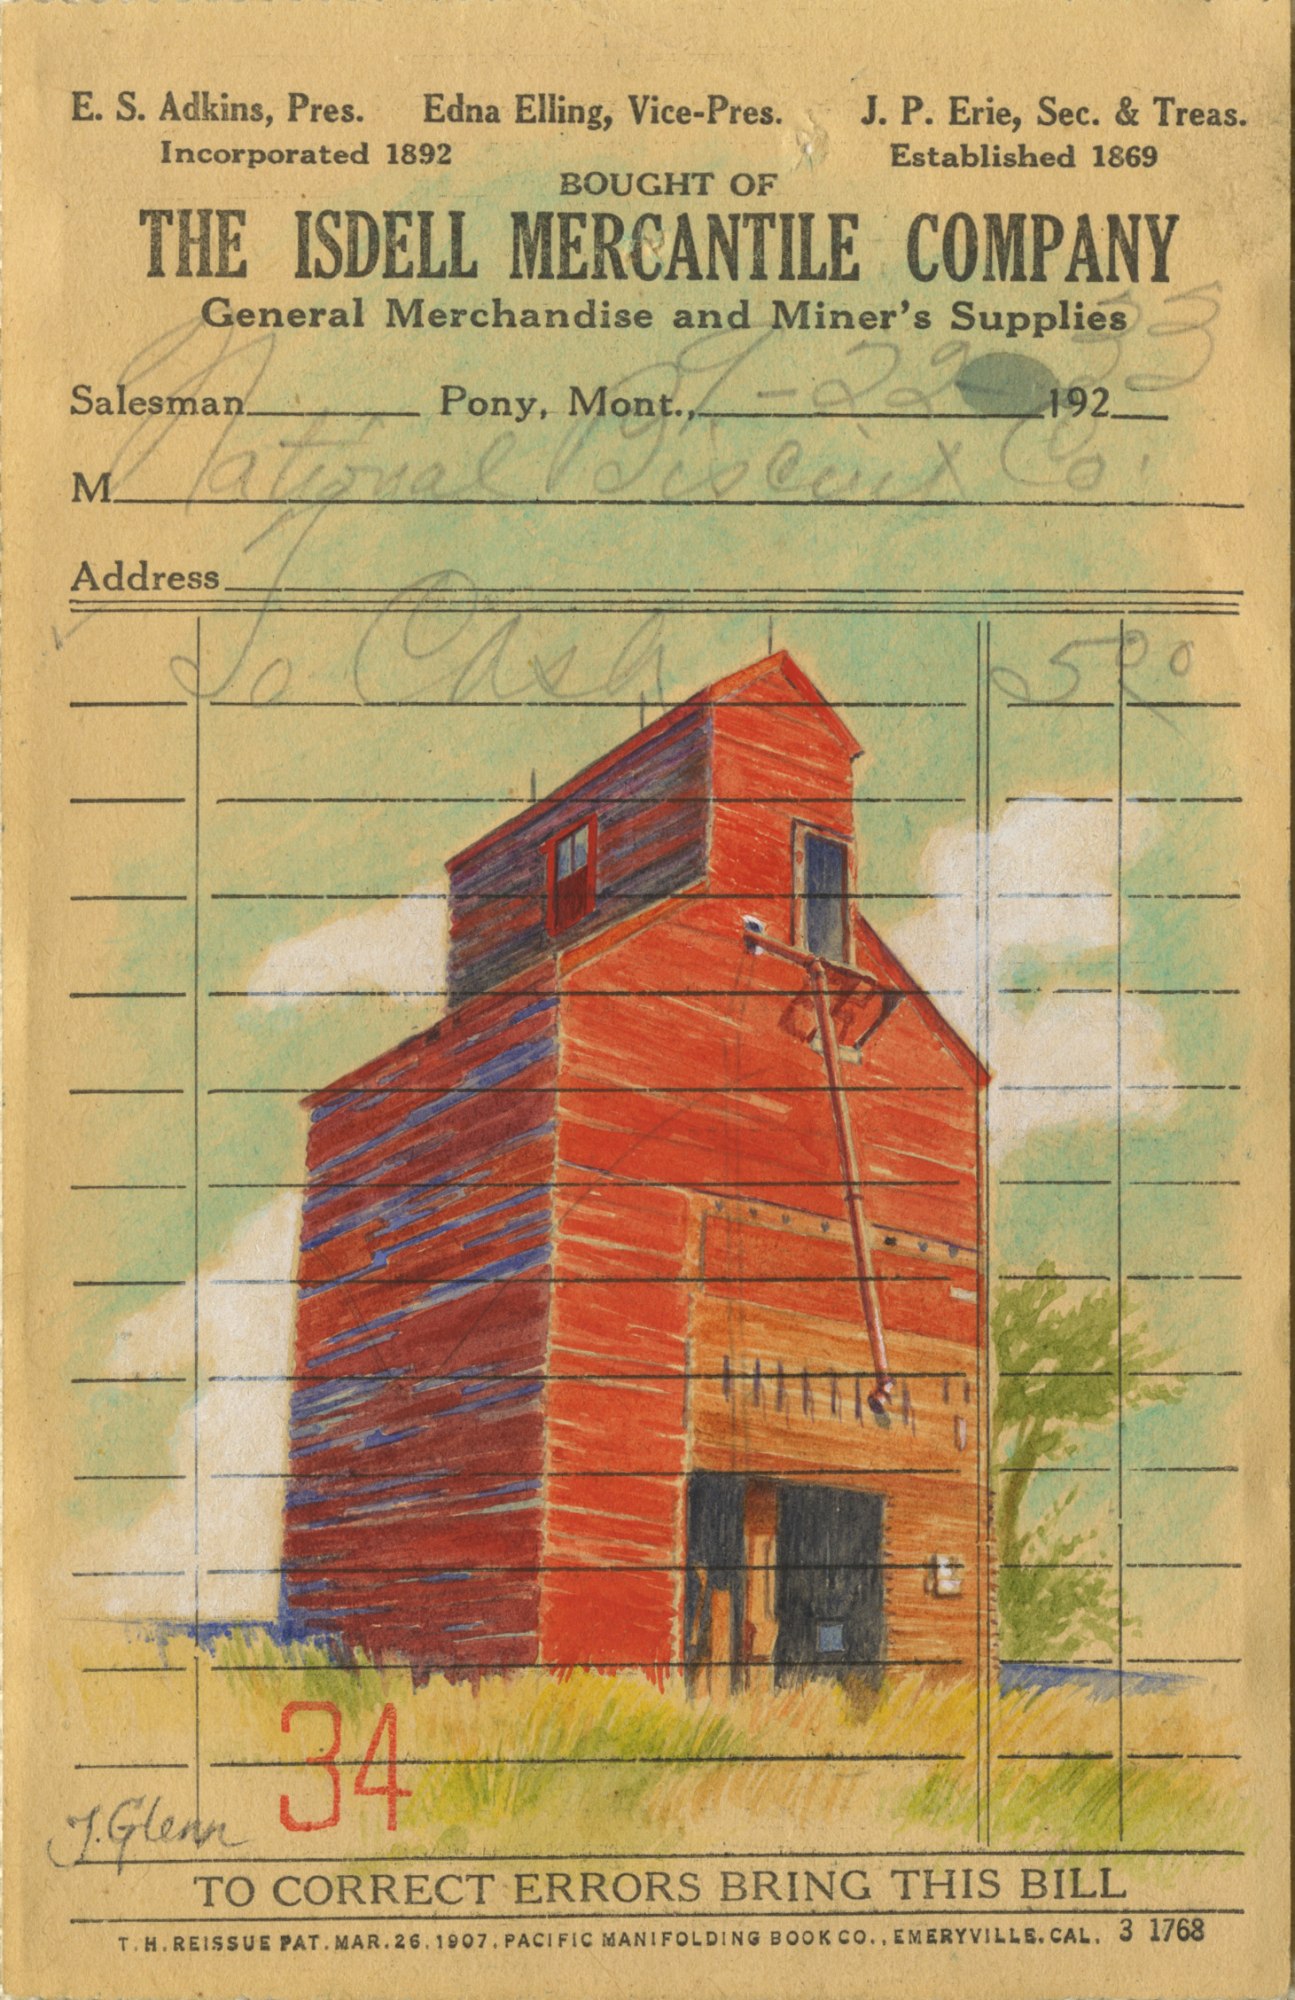 E. S. Adkins, Pres. Edna Elling, Vice-Pres. J. P. Erie, Sec. & Treas.
Incorporated 1892 Established 1869
BOUGHT OF
THE ISDELL MERCANTILE COMPANY
General Merchandise and Miner's Supplies
Salesman Pony, Mont., 9-22-33 192
M National Biscuit Co.
Address
To Cash 500
34
J. Glenn
TO CORRECT ERRORS BRING THIS BILL
T.H. REISSUE PAT. MAR. 26, 1907. PACIFIC MANIFOLDING BOOK CO., EMERYVILLE. CAL. 3 1768